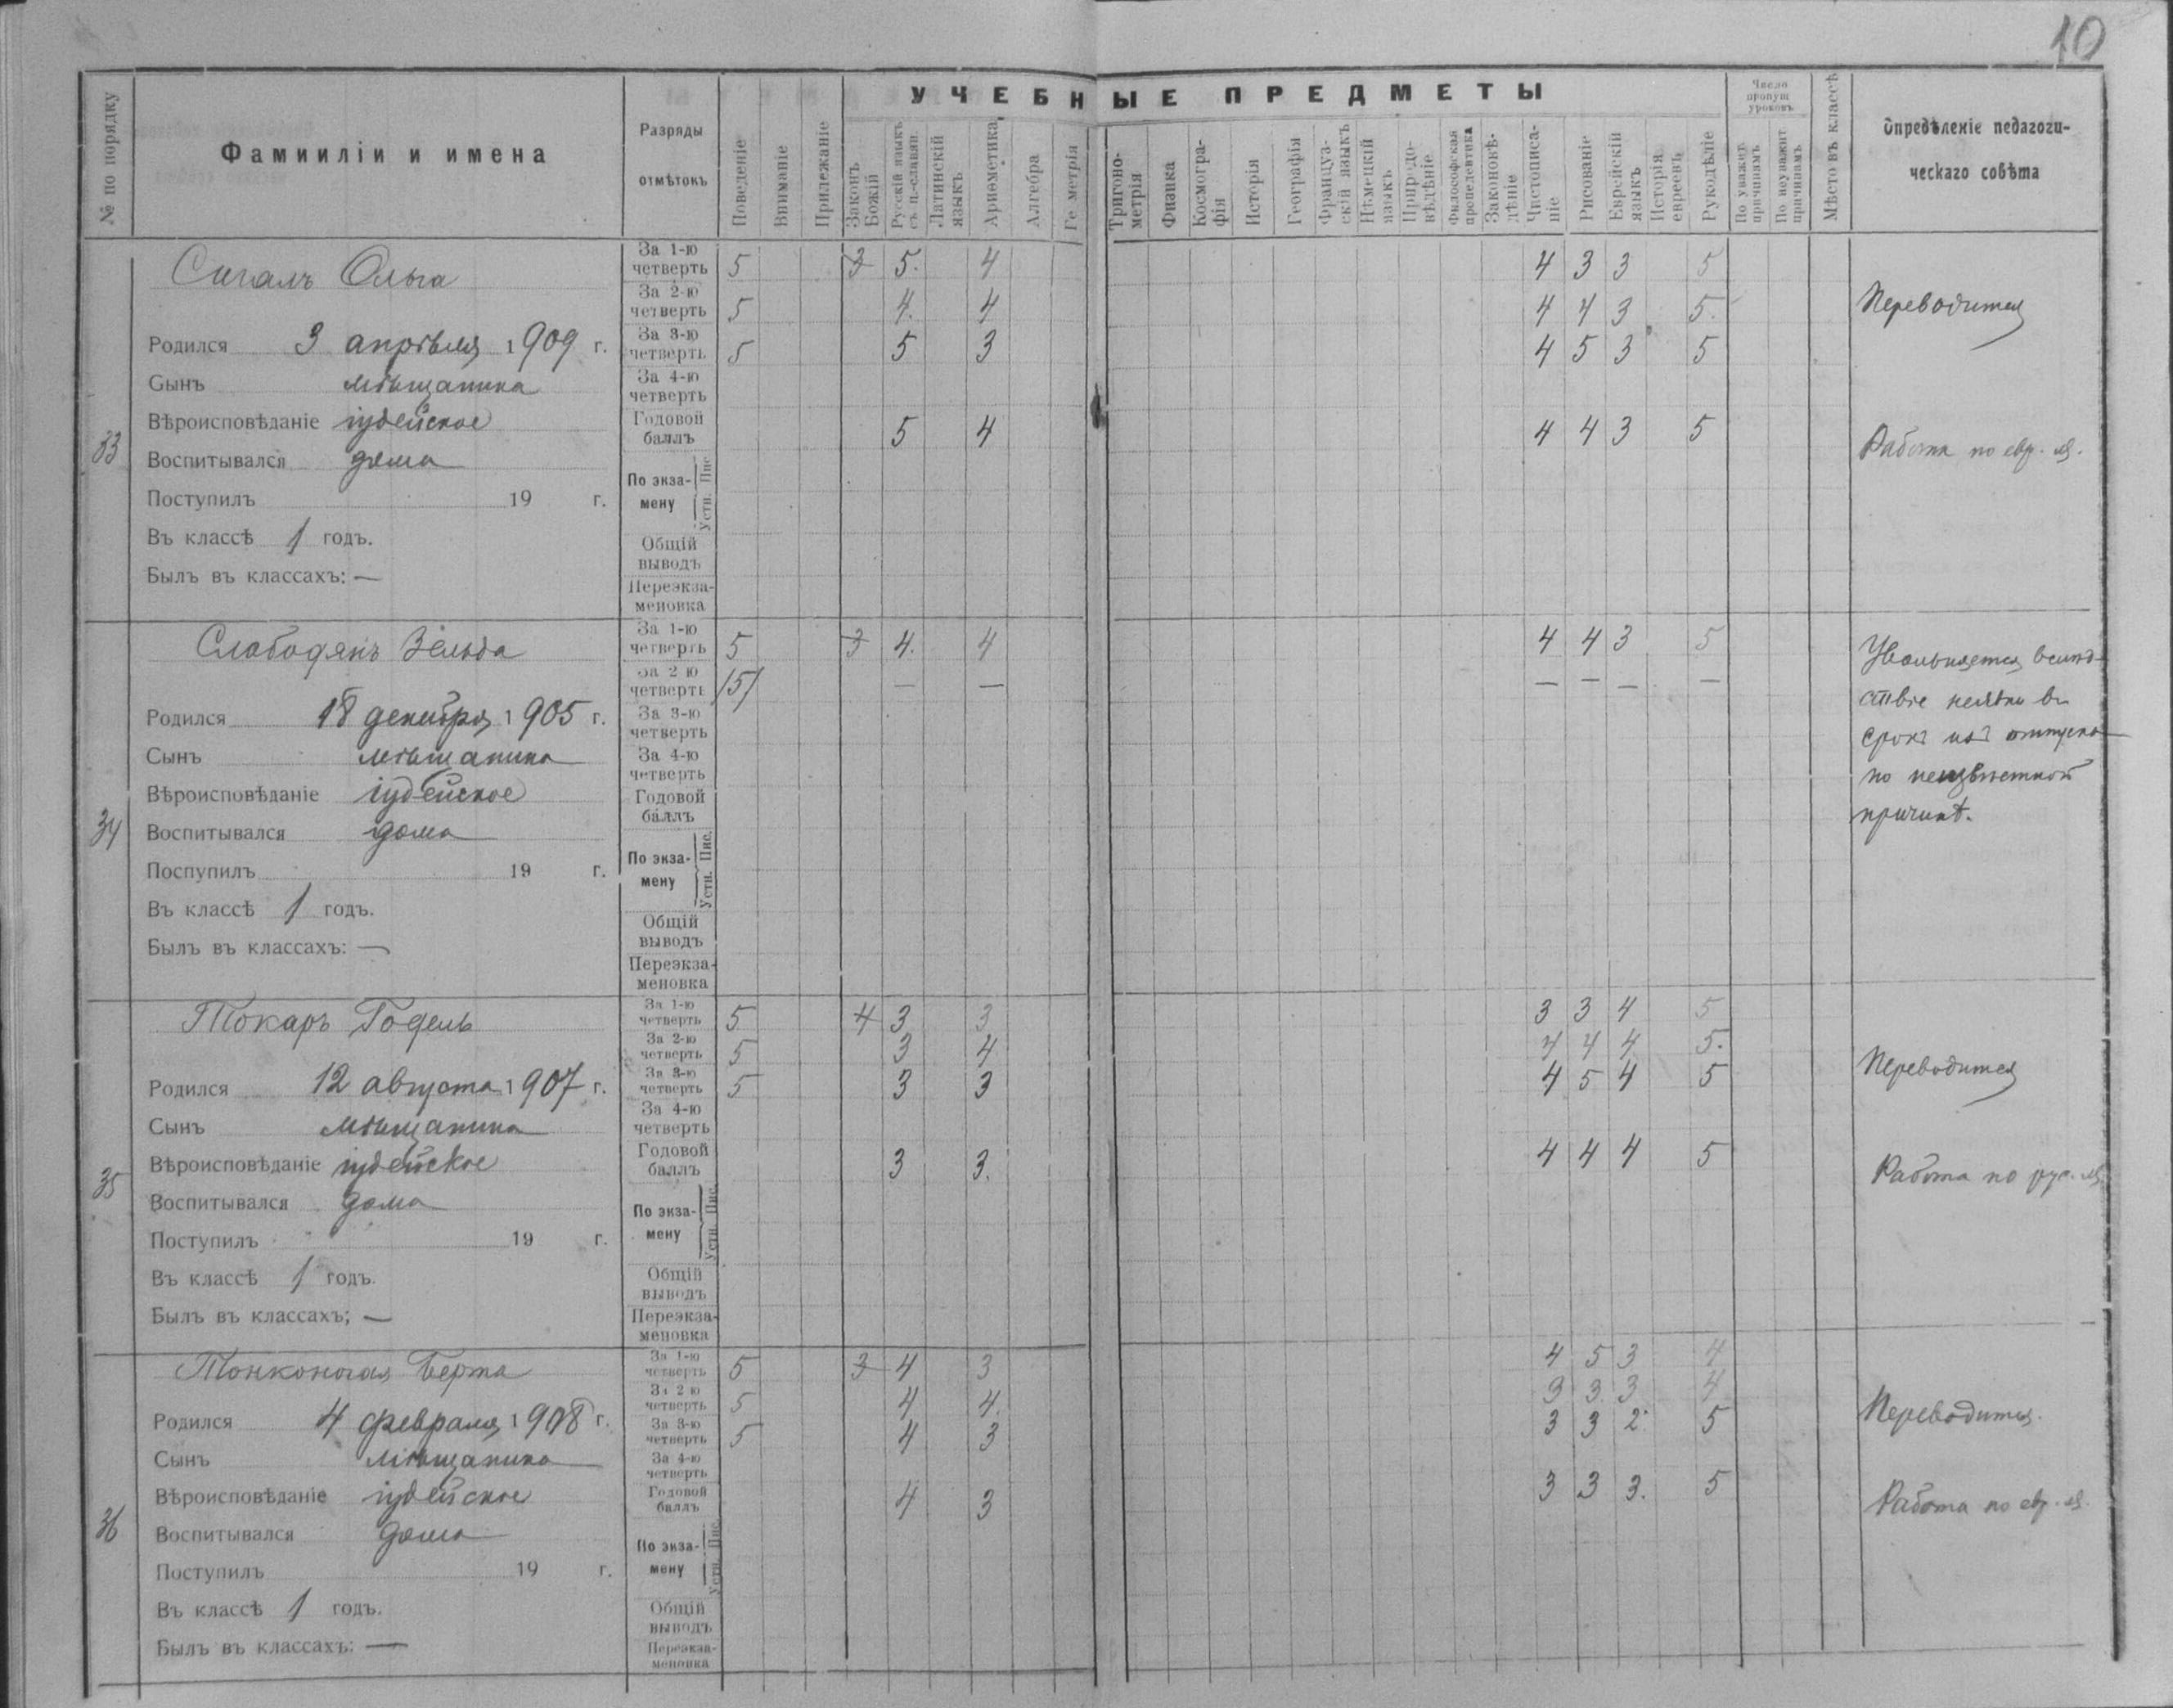 10
№ по порядку
Фамииліи и имена
Разряды
отмѣтокъ
УЧЕБНЫЕ ПРЕДМЕТЫ
Поведеніе
Вниманіе
Прилежаніе
Законъ Божій
Русскій языкъ съ ц.-славян.
Латинскій языкъ
Ариѳметика
Алгебра
Ге метрія
Тригоно-метрія
Физика
Космогра-фія
Исторія
Географія
Француз-скій языкъ
Нѣмецкій языкъ
Природо-вѣдѣніе
Философская пропедевтика
Законовѣ-дѣніе
Чистописа-ніе
Рисованіе
Еврейскій языкъ
Исторія евреевъ
Рукодѣліе
Число пропущ уроковъ
По уважит. причинамъ
По неуважит причинамъ
Мѣсто въ классѣ
Опредѣленіе педагоги-
ческаго совѣта
33
Сигалъ Ольга
Родился 3 апрѣля 1909 г.
Сынъ мѣщанина
Вѣроисповѣданіе іудейское
Воспитывался дома
Поступилъ 19 г.
Въ классѣ 1 годъ.
Былъ въ классахъ: —
За 1-ю четверть 5 3 5. 4 4 3 3 5
За 2-ю четверть 5 4. 4 4 4 3 5.
За 3-ю четверть 5 5 3 4 5 3 5
За 4-ю четверть
Годовой баллъ 5 4 4 4 3 5
По экза-мену Пис Устн.
Общій выводъ
Переэкза-меновка
Переводится
Работа по евр. яз.
34
Слободянъ Зельда
Родился 18 декабря 1905 г.
Сынъ мѣщанина
Вѣроисповѣданіе іудейское
Воспитывался дома
Поспупилъ 19 г.
Въ классѣ 1 годъ.
Былъ въ классахъ: —
За 1-ю четверть 5 3 4. 4 4 4 3 5
За 2 ю четверть /5/ — — — — — —
За 3-ю четверть
За 4-ю четверть
Годовой баллъ
По экза-мену Пис. Устн.
Общій выводъ
Переэкза-меновка
Увольняется вслѣд-
ствіе неявки въ
срокъ изъ отпуска
по неизвѣстной
причинѣ.
35
Токаръ Годель
Родился 12 августа 1907 г.
Сынъ мѣщанина
Вѣроисповѣданіе іудейское
Воспитывался дома
Поступилъ 19 г.
Въ классѣ 1 годъ.
Былъ въ классахъ; —
За 1-ю четверть 5 4 3 3 3 3 4 5
За 2-ю четверть 5 3 4 4 4 4 5.
За 3-ю четверть 5 3 3 4 5 4 5
За 4-ю четверть
Годовой баллъ 3 3. 4 4 4 5
По экза-мену Пис. Устн.
Общій выводъ
Переэкза-меновка
Переводится
Работа по рус. яз.
36
Тонконогая Берта
Родился 4 февраля 1908 г.
Сынъ мѣщанина
Вѣроисповѣданіе іудейское
Воспитывался дома
Поступилъ 19 г.
Въ классѣ 1 годъ.
Былъ въ классахъ: —
За 1-ю четверть 5 3 4 3 4 5 3 4
За 2 ю четверть 5 4 4. 3 3 3 4
За 3-ю четверть 5 4 3 3 3 2. 5
За 4-ю четверть
Годовой баллъ 4 3 3 3 3. 5
По экза-мену Пис. Устн.
Общій выводъ
Переэкза-меновка
Переводится.
Работа по евр. яз.